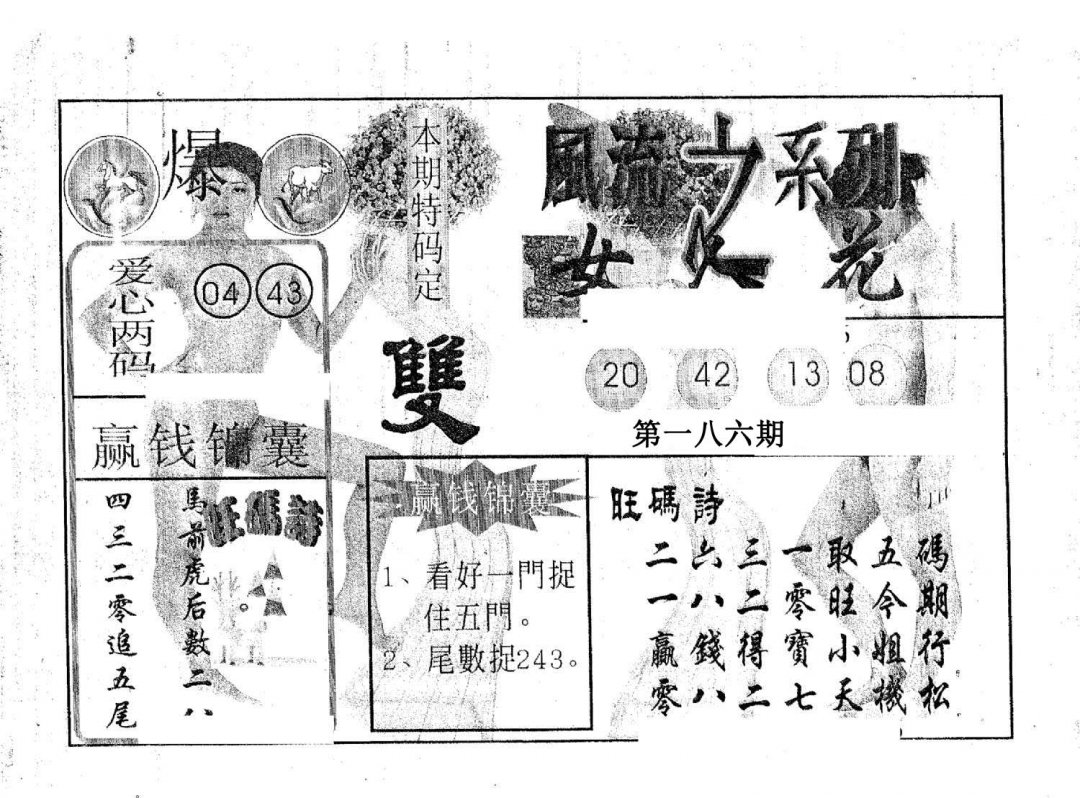 爆
爱心两码
04 43
赢钱锦囊
四三二零追五尾
馬前虎后数二八
旺碼詩
本期特码定
雙
風流女系列
女人花
20 42 13 08
第一八六期
赢钱锦囊
1、看好一門捉
住五門。
2、尾數捉243。
旺碼詩
二六三一取五碼
一八二零旺今期
贏錢得寶小姐行
零八二七天機松